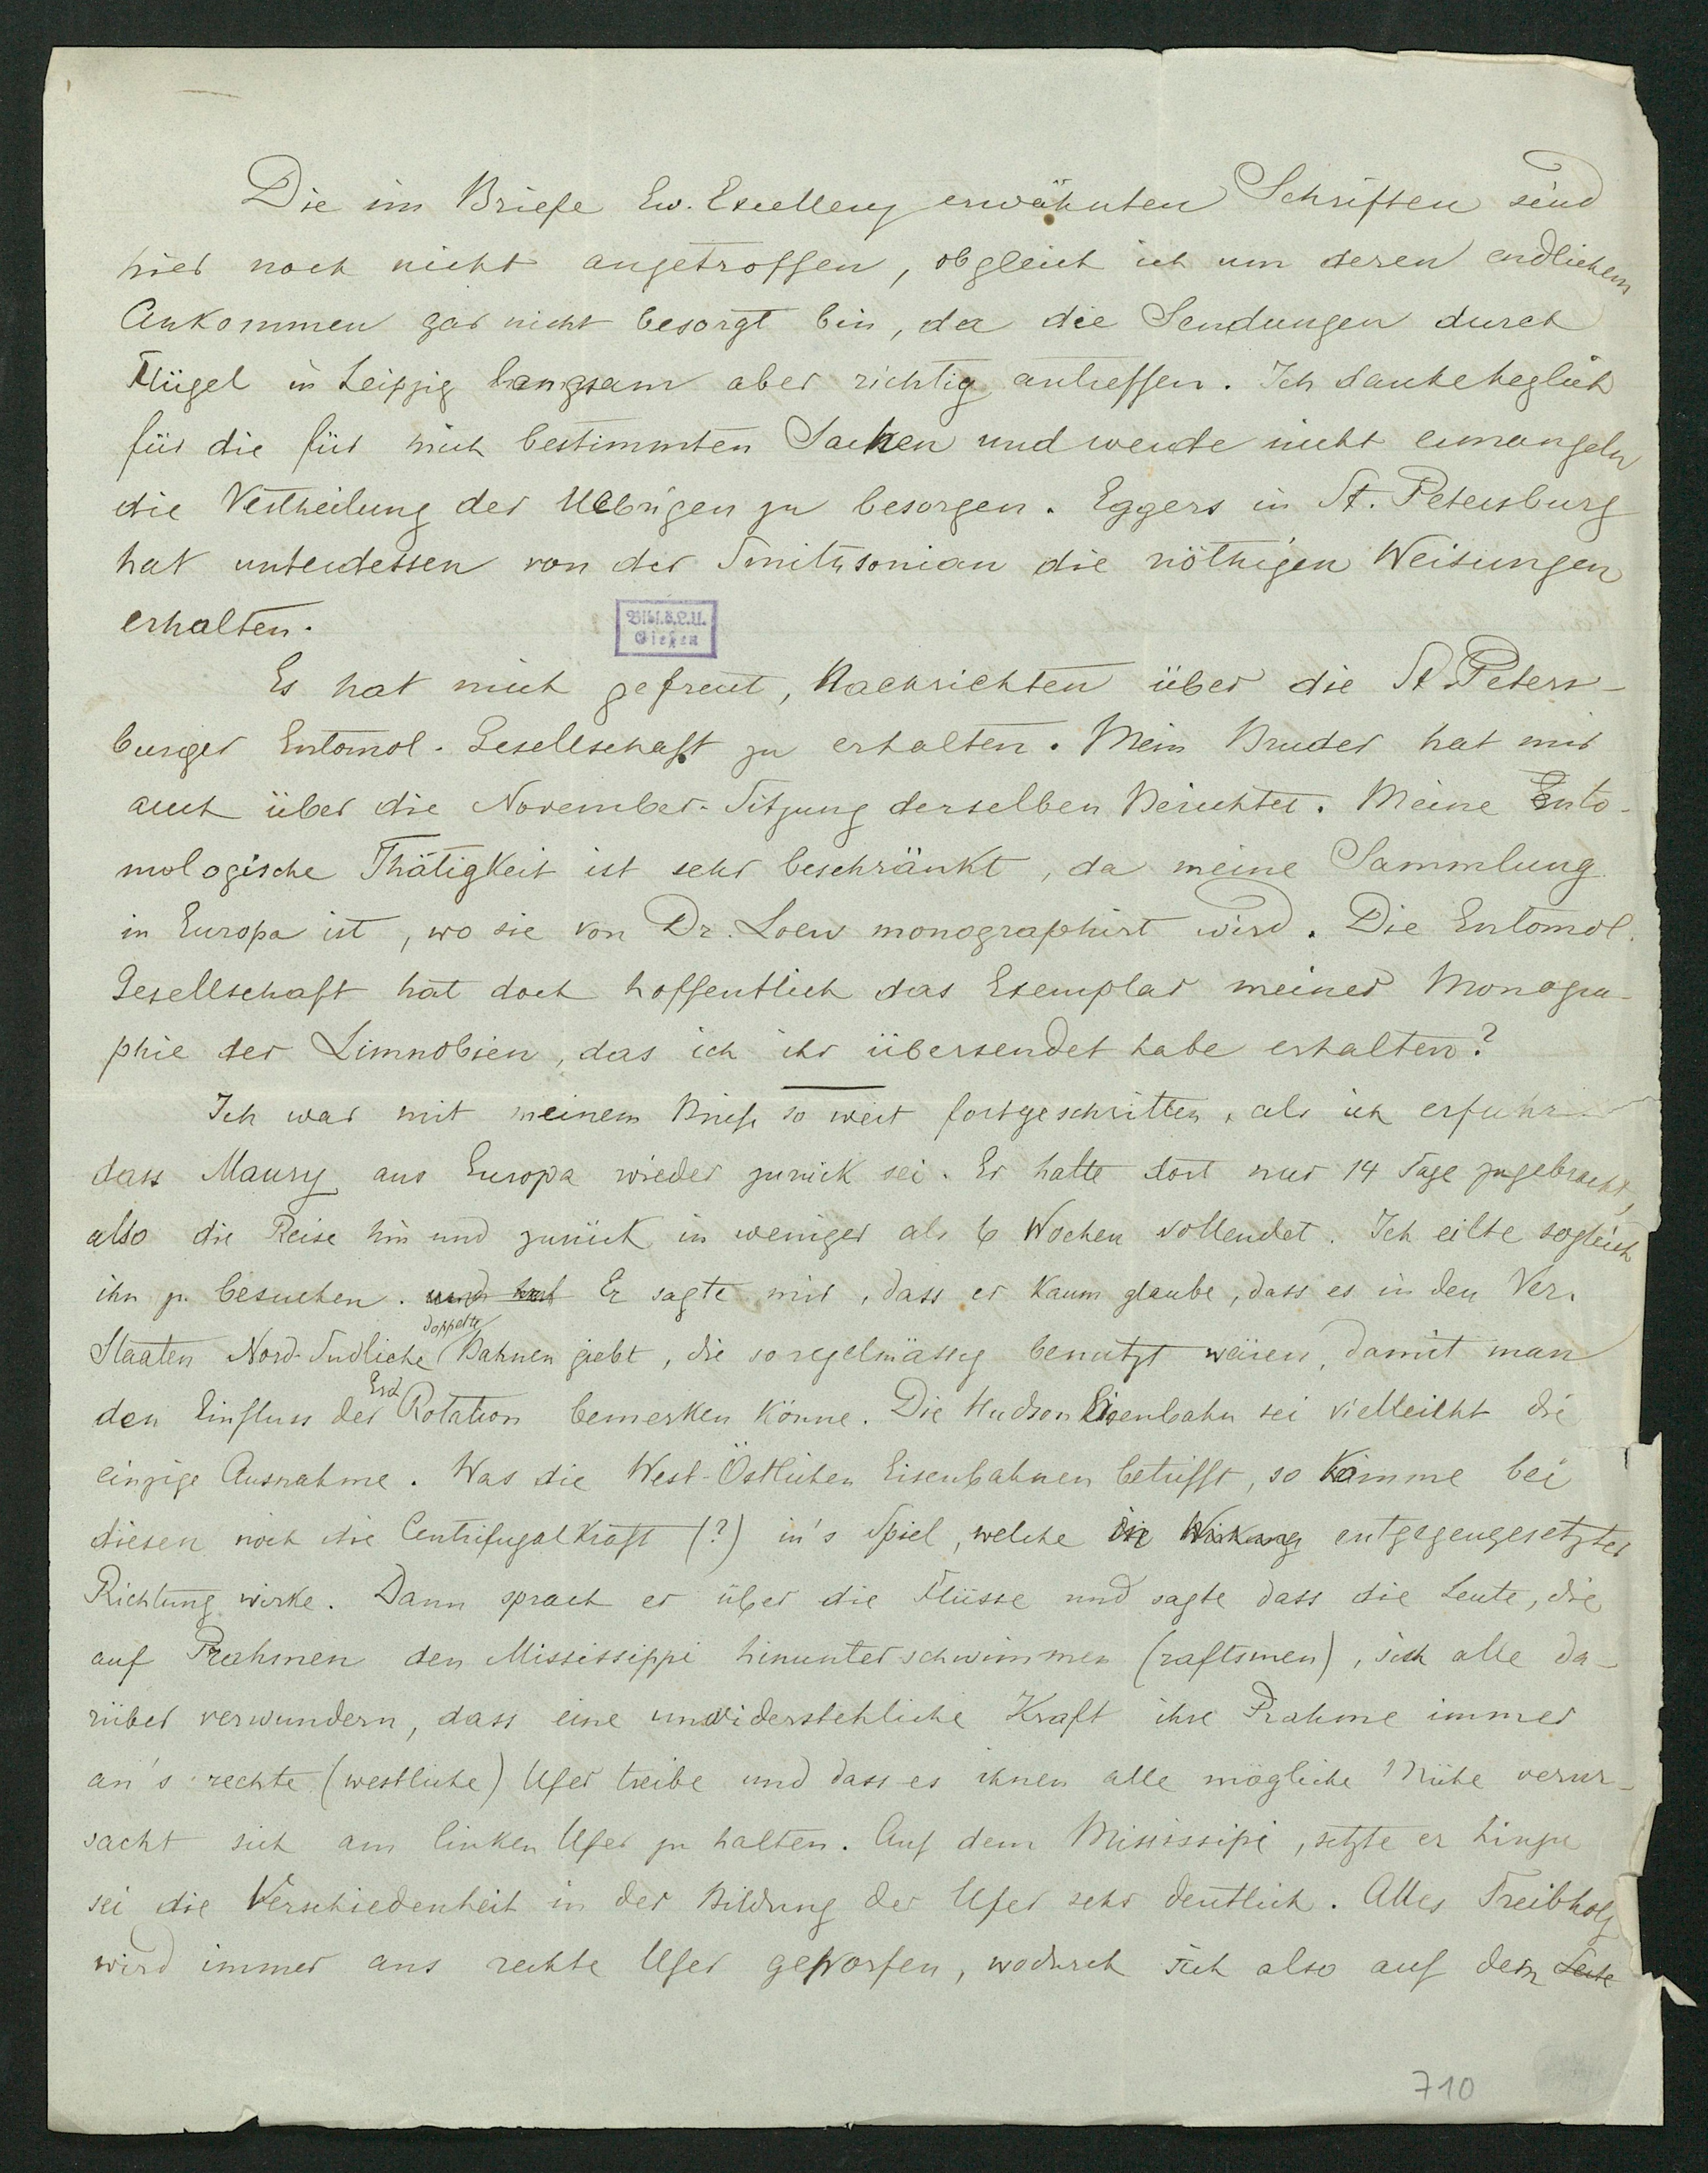 Die im Briefe Ew. Excellenz erwähnten Schriften sind
hier noch nicht angetroffen, obgleich ich um deren endlichem
Ankommen gar nicht besorgt bin, da die Sendungen durch
Flügel in Leipzig langsam aber richtig antreffen. Ich danke herzlich
für die für mich bestimmten Sachen und werde nicht ermangeln
die Vertheilung der Uebrigen zu besorgen. Eggers in St. Petersburg
hat unterdessen von der Smithsonian die nöthigen Weisungen
erhalten.
Bibl. d. L. U.
Gießen
Es hat mich gefreut, Nachrichten über die St. Peters-
burger Entomol. Gesellschaft zu erhalten. Mein Bruder hat mir
auch über die November-Sitzung derselben berichtet. Meine Ento-
mologische Thätigkeit ist sehr beschränkt, da meine Sammlung
in Europa ist, wo sie von Dr. Loew monographirt wird. Die Entomol.
Gesellschaft hat doch hoffentlich das Exemplar meiner Monogra-
phie der Limnobien, das ich ihr übersendet habe erhalten?
Ich war mit meinem Briefe so weit fortgeschritten, als ich erfuhr
dass Maury aus Europa wieder zurück sei. Er hatte dort nur 14 Tage zugebracht,
also die Reise hin und zurück in weniger als 6 Wochen vollendet. Ich eilte sogleich
ihn zu besuchen. und hat Er sagte mir, dass er kaum glaube, dass es in den Ver.
doppelte
Staaten Nord-Südliche Bahnen giebt, die so regelmässig benutzt wären, damit man
Erd
den Einfluss der Rotation bemerken könne. Die Hudson Eisenbahn sei vielleicht die
einzige Ausnahme. Was die West-Östlichen Eisenbahnen betrifft, so komme bei
diesen noch die Centrifugalkraft (?) in's Spiel, welche in Wirkung entgegengesetzter
Richtung wirke. Dann sprach er über die Flüsse und sagte dass die Leute, die
auf Prahmen den Mississippi hinunter schwimmen (raftsmen), sich alle da-
rüber verwundern, dass eine unwiderstehliche Kraft ihre Prahme immer
an's rechte (westliche) Ufer treibe und dass es ihnen alle mögliche Mühe verur-
sacht sich am linken Ufer zu halten. Auf dem Mississipi, setzte er hinzu
sei die Verschiedenheit in der Bildung der Ufer sehr deutlich. Alles Treibholz
wird immer ans rechte Ufer geworfen, wodurch sich also auf dem Seite
710